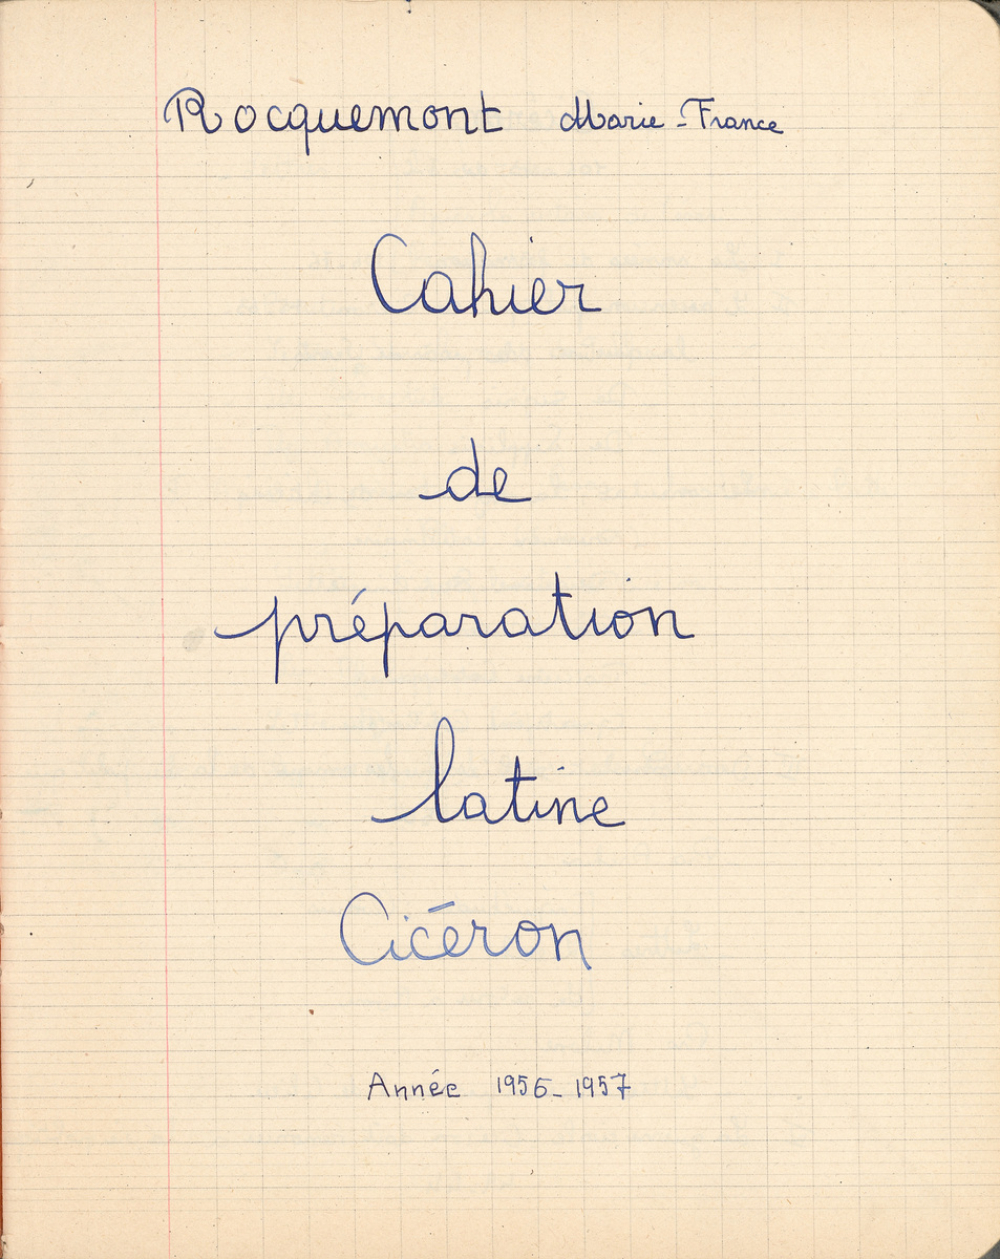 Rocquemont Marie-France
Cahier
de
préparation
latine
Cicéron
Année 1956-1957